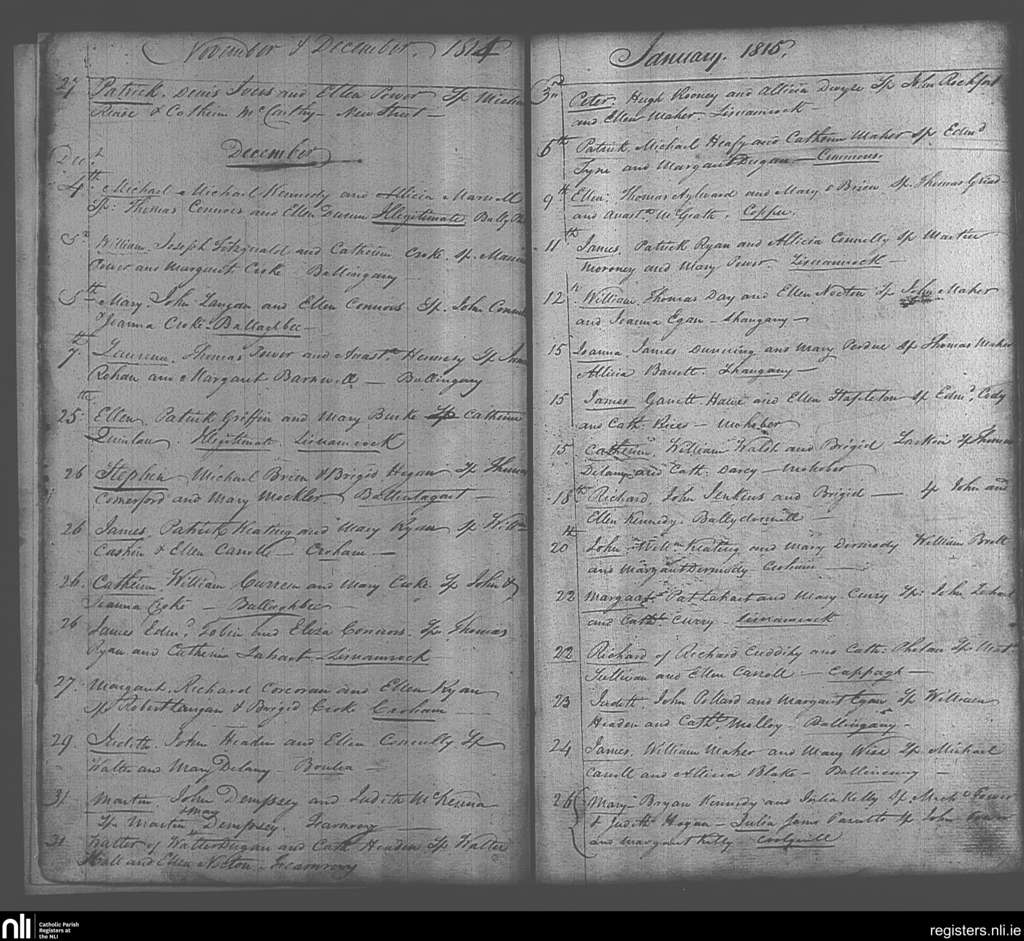 November & December. 1814
27 Patrick. Denis Ivers and Ellen Power Sp
& Catherin McCarthy - New Street -
December
Decr
4th Michael Michael Kennedy and Allicia
Sp: Thomas Connors and Ellen Illegitimate
5th William. Joseph and Catherin Cooke. Sp.
Power and Margaret Cooke - Ballingary -
5th Mary. John Langan and Ellen Connors Sp. John
& Joanna Cooke - Ballaghbee -
7th Laurence. Thomas Power and Anasta Hennesy Sp
Rohan and Margaret Barnwell - Ballingary
25th Ellen. Patrick Griffin and Mary Burke Sp Catherine
Quinlan Illegitimate. Lisnamrock
26 Stephen - Michael Brien & Brigid Hogan Sp
Comerford and Mary Mockler Ballintagart -
26 James. Patrick Keating and Mary Ryan Sp Willm
& Ellen Carrolle - Croham -
26. Catherin William Curreen and Mary Cooke. Sp John &
Joanna Cooke - Ballaghbee
26 James Edmd Tobin and Eliza Connors. Sp Thomas
Ryan and Catherin Lahart - Lisnamrock
27. Margaret. Richard Corcoran and Ellen Ryan
Sp Robert Langan & Brigid Cooke Croham
29. Judith. John Headen and Ellen Connelly Sp
Walter and Mary Delany - Boulea -
31 Martin. John Dempsey and Judith McKenna
Sp Martin Dempsey.
31 Walter of Walter Dugan and Cath. Headen Sp Walter
Hall and Ellen
January. 1815.
3rd Peter. Hugh Rooney and Allicia Dwyer Sp John Rochfort
and Ellen Maher. Lisnamrock
6th Patrick Michael Heafy and Catherin Maher Sp Edmd
Tyne and Margaret Dugan - Commons
9th Ellen. Thomas Aylward and Mary O Brien. Sp. Thomas
and Anasta McGrath. Coppu.
11th James. Patrick Ryan and Allicia Connelly Sp Martin
Moroney and Mary Power Lisnamrock -
12th William. Thomas Day and Ellen Norton Sp John Maher
and Joanna Egan -
15 Joanna. James Dunning and Mary Perdue Sp Thomas Maher
Allicia Barrett.
15 James Garrett Hawe and Ellen Stapleton Sp Edmd Cody
and Cath. Rice - Mohober
15 Catherin. William Walsh and Brigid Larkin Sp Thomas
Delany and Cath. Darcy - Mohober
18th Richard John Jenkins and Brigid — Sp John and
Ellen Kennedy. Ballydonnell
20th John - Willm Keating and Mary Dermody William Brett
and Margaret Dermody Croham
22 Margaret Pat Lahart and Mary Curry Sp: John Lahart
and Cath. Curry - Lisnamrock
22 Richard of Richard Cuddihy and Cath: Phelan Sp Mat
Sullivan and Ellen Carroll - Cappagh -
23 Judith. John Pollard and Margaret Egan Sp William
Headen and Cath. Molloy. Ballingary -
24 James, William Maher and Mary Wise Sp Michael
Carroll and Allicia Blake - Ballincurry -
26 Mary Bryan Kennedy and Julia Kelly Sp Michl Power
& Judith Hogan - Julia Same Parents Sp John Power
and Margaret Kelly Coolquill
nli Catholic Parish
Registers at
the NLI
registers.nli.ie